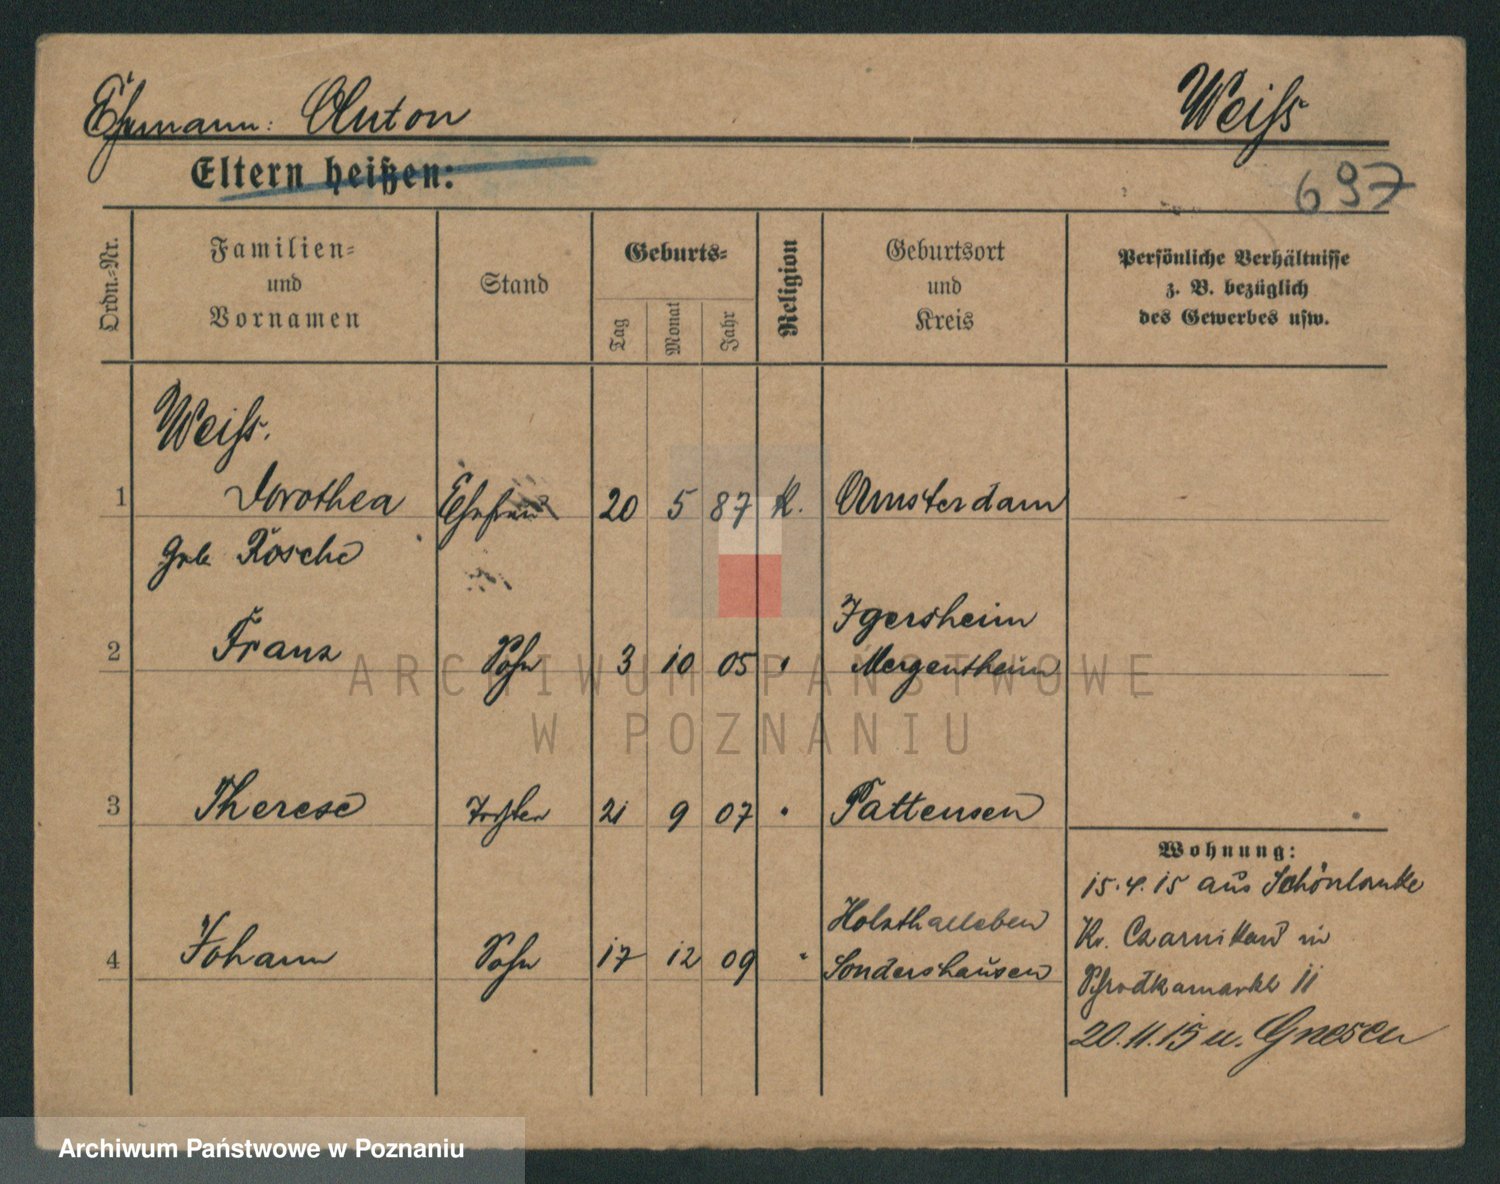 Ehemann: Anton Weiss
Eltern heißen:
697
Ordn.-Nr.
Familien= und Vornamen
Stand
Geburts=
Tag
Monat
Jahr
Religion
Geburtsort und Kreis
Persönliche Verhältnisse
z. B. bezüglich
des Gewerbes usw.
Weiss.
1 Dorothea Ehefrau 20 5 87 K. Amsterdam
geb. Rosche
Igersheim
2 Franz Sohn 3 10 05 " Mergentheim
3 Therese Tochter 21 9 07 " Pattensen
Holzthalleben
4 Johann Sohn 17 12 09 " Sondershausen
Wohnung:
15.4.15 aus Schönlanke
Kr. Czarnikau in
Schrodkamarkt 11
20.11.15 n. Gnesen
ARCHIWUM PAŃSTWOWE
W POZNANIU
Archiwum Państwowe w Poznaniu